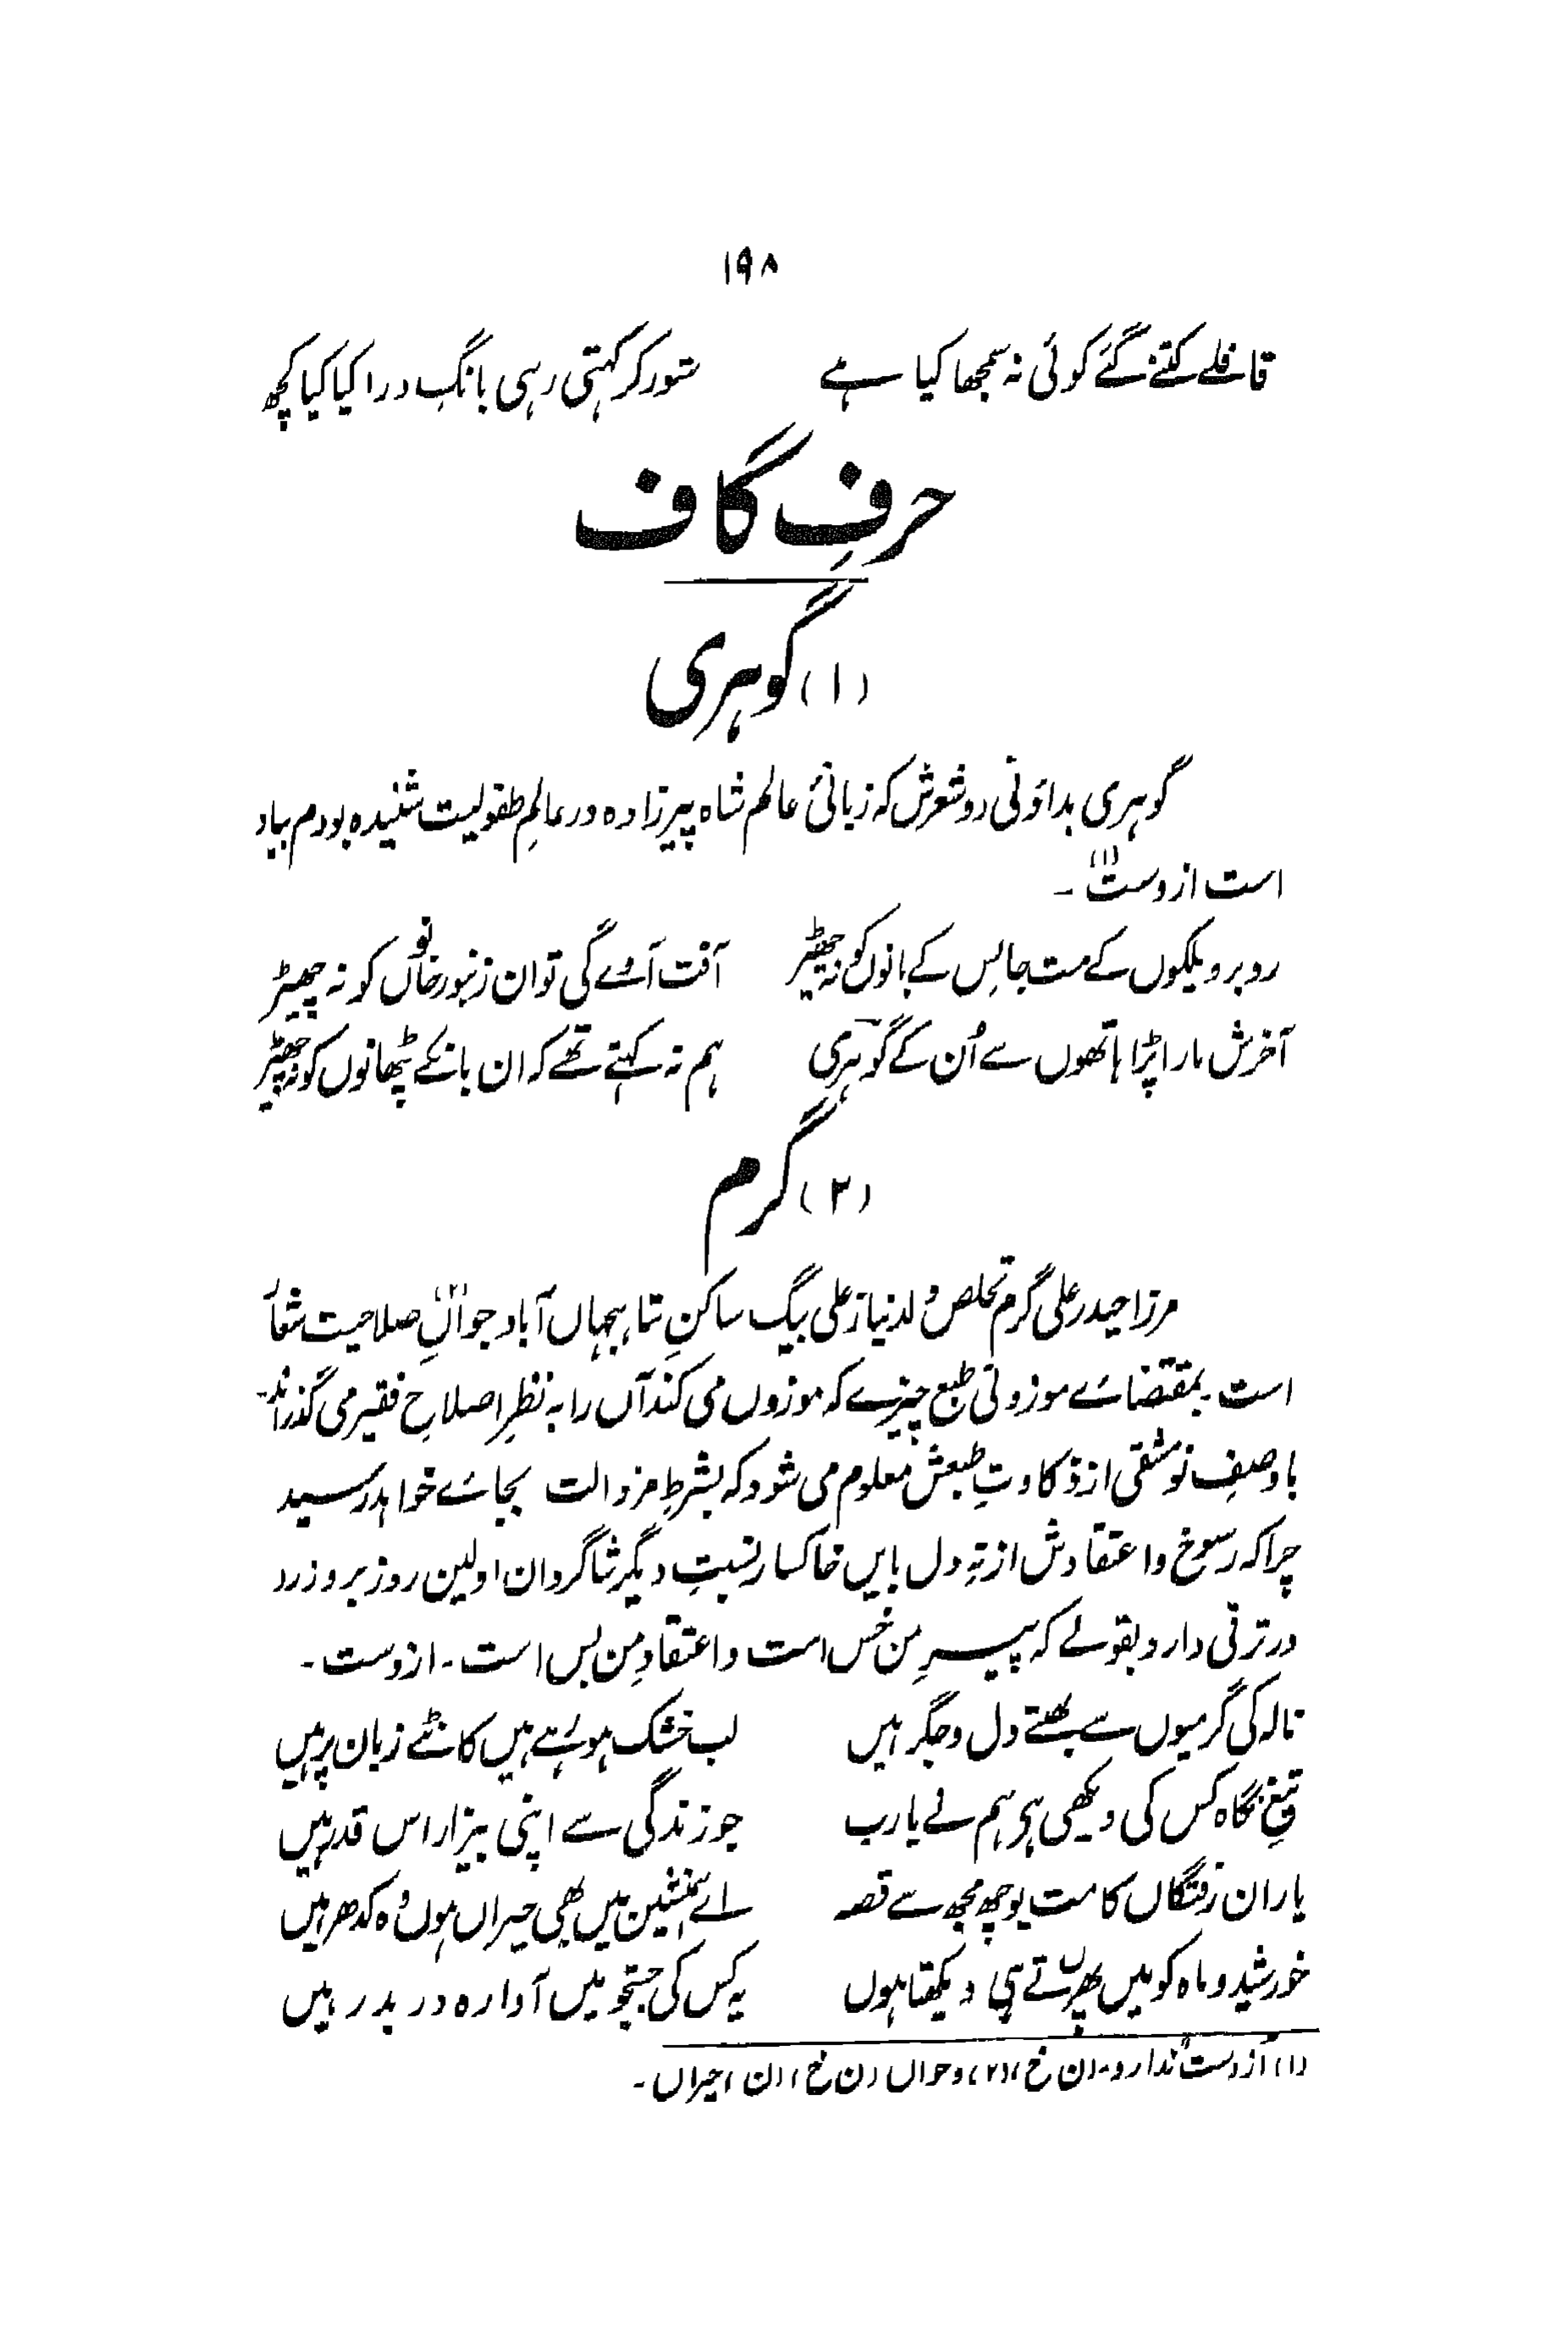 ۱۹۸
قافلے کتنے گئے کوئی نہ سمجھا کیا ہے شور کر کہتی رہی بانگِ درا کیا کیا کچھ
حرفِ گاف
(۱) گوہری
گوہری بداؤنی دو شعرش کہ زبانیٔ عالم شاہ پیرزادہ در عالمِ طفولیت شنیدہ بودم بیاد
است ازوست(۱) ۔
روبرو پلکوں کے مت جا لِس کے بانوں کو نہ چھیڑ آفت آئے گی تو ان زنبور خانوں کو نہ چھیڑ
آخرش مارا پڑا ہاتھوں سے اُن کے گوہری ہم نہ کہتے تھے کہ ان بانکے پٹھانوں کو نہ چھیڑ
(۲) گرم
مرزا حیدر علی گرم تخلص ولد نیاز علی بیگ ساکنِ شاہجہاں آباد جوانِ(۲) صلاحیت شعار
است بمقتضائے موزونی طبع چیزے کہ موزوں می کند آں را بہ نظرِ اصلاحِ فقیر می گذراند۔
با وصفِ نو مشقی از ذکاوتِ طبعش معلوم می شود کہ بشرطِ مزاولت بجائے خواہد رسید
چرا کہ رسوخ و اعتقادش از تہِ دل بایں خاکسار نسبتِ دیگر شاگردان اولین روز بروز رد
در ترقی دارد بقولے کہ پیرِ من خس است و اعتقادِ من بس است۔ ازوست۔
نالہ کی گرمیوں سے بھنتے دل و جگر ہیں لب خشک ہو رہے ہیں کانٹے زبان پر ہیں
تیغِ نگاہ کس کی دیکھی ہی ہم نے یارب جو زندگی سے اپنی بیزار اس قدر ہیں
یاران رفتگاں کا مت پوچھ مجھ سے قصہ اے ہمنشین میں بھی حیراں ہوں وہ کدھر ہیں
خورشید و ماہ کو میں پھرتے ہی دیکھتا ہوں یہ کس کی جستجو میں آوارہ در بدر ہیں
(۱) ازوست ندارد۔ (ن خ) (۲) وحواں (ن خ) (ن) حیراں۔